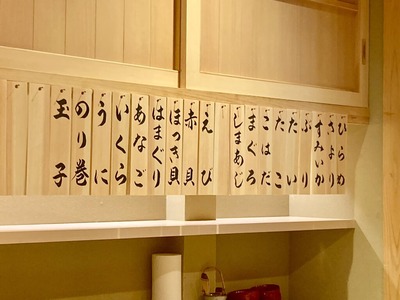 ひらめ
さより
すみいか
ぶり
たい
たこ
こはだ
まぐろ
しまあじ
えび
赤貝
ほっき貝
はまぐり
あなご
いくら
うに
のり巻
玉子